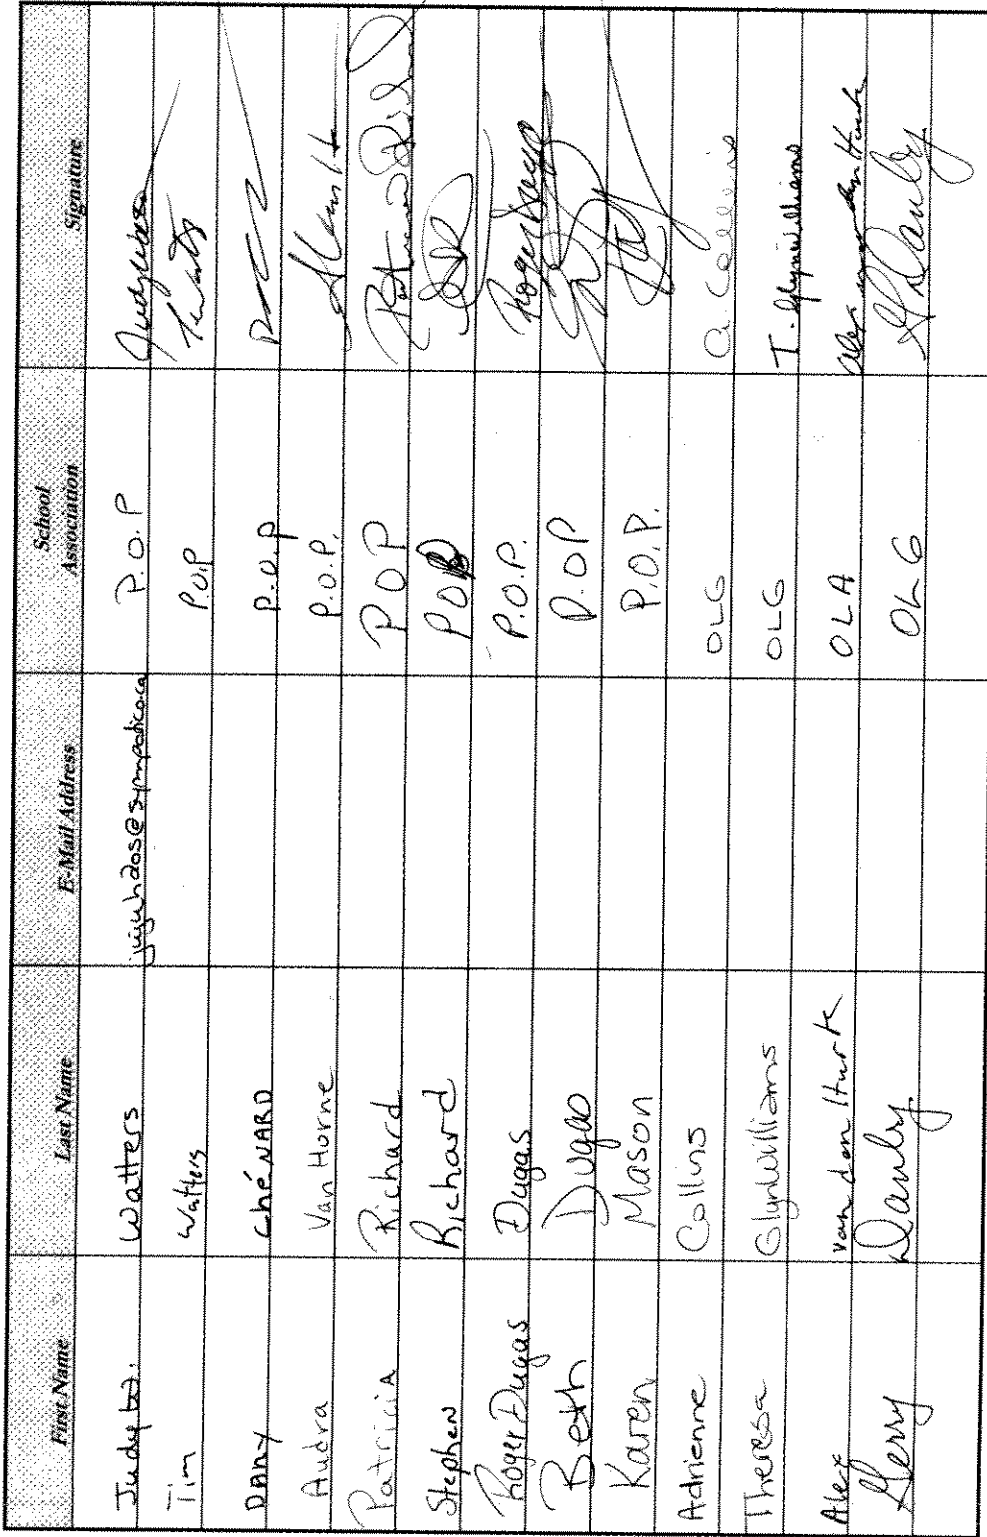 First Name Last Name E-Mail Address School Association Signature
Judy Watters P.O.P
Tim Watters P.O.P
DANY CHéNARD P.O.P
Audra Van Horne P.O.P.
Patricia Richard POP
Stephen Richard POP
Roger Dugas Dugas P.O.P. Roger Dugas
Beth Dugas P.OP
Karen Mason P.O.P.
Adrienne Collins OLG A. Collins
Theresa GlynWilliams OLG T. Glynwilliams
Alex van den Hurk OLA Alex van den Hurk
Gerry Dauby OLG G Dauby